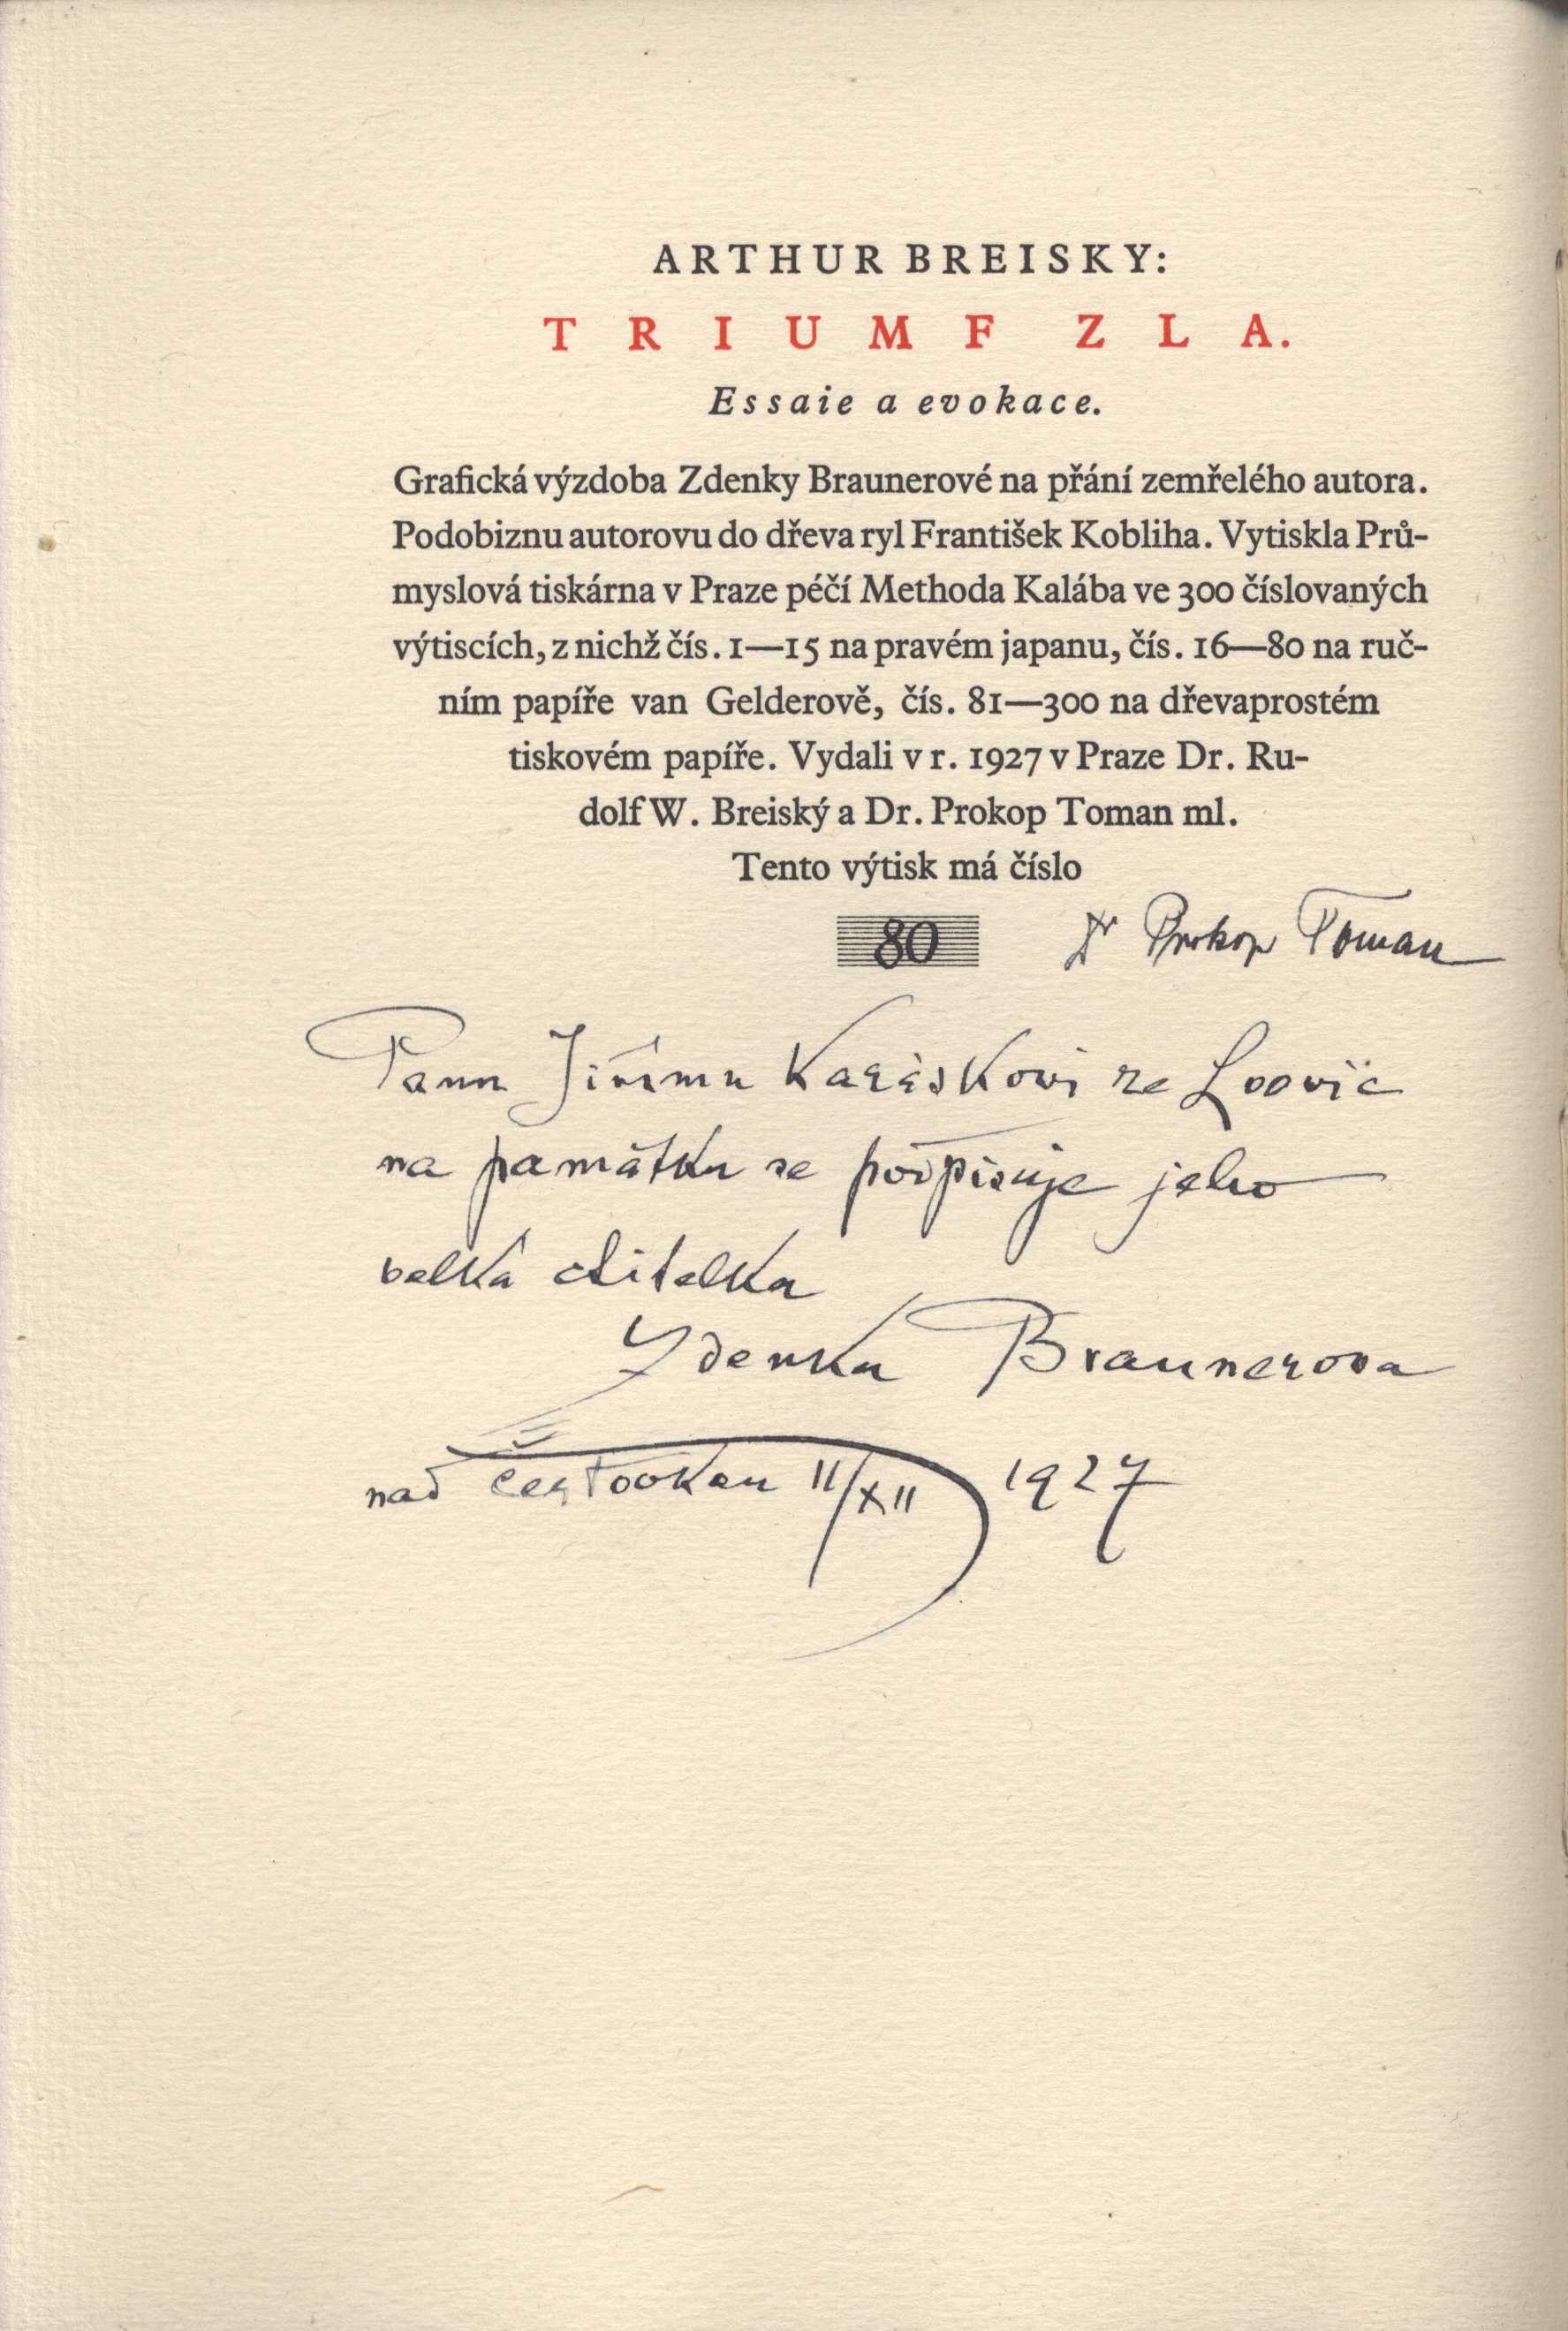 ARTHUR BREISKY:
TRIUMF ZLA.
Essaie a evokace.
Grafická výzdoba Zdenky Braunerové na přání zemřelého autora.
Podobiznu autorovu do dřeva ryl František Kobliha. Vytiskla Prů-
myslová tiskárna v Praze péčí Methoda Kalába ve 300 číslovaných
výtiscích, z nichž čís. 1—15 na pravém japanu, čís. 16—80 na ruč-
ním papíře van Gelderově, čís. 81—300 na dřevaprostém
tiskovém papíře. Vydali v r. 1927 v Praze Dr. Ru-
dolf W. Breiský a Dr. Prokop Toman ml.
Tento výtisk má číslo
80 Dr Prokop Toman
Panu Jiřímu Karáskovi ze Lvovic
na památku se podpisuje jeho
velká ctitelka
Zdenka Braunerova
nad 11/XII 1927